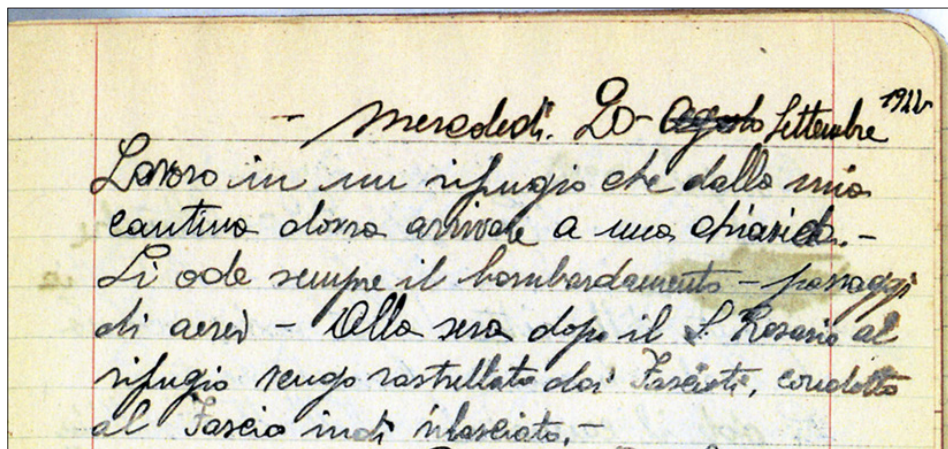 - Mercoledì. 20 - Agosto Settembre 1944
Lavoro in un rifugio che dalla mia
cantina dovrà arrivare a una chiavica. -
Si ode sempre il bombardamento - passaggi
di aerei - Alla sera dopo il S. Rosario al
rifugio vengo rastrellato dai Fascisti, condotto
al Fascio indi rilasciato, -